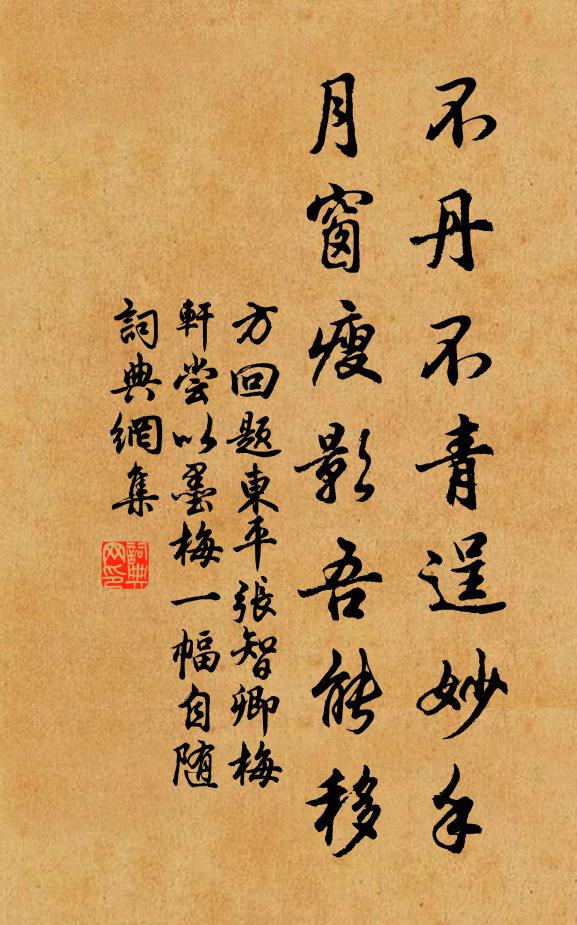 不丹不青逞妙手
月窗瘦影吾能移
方回题東平張智卿梅
軒嘗以墨梅一幅自随
詞典網集
詞典网印